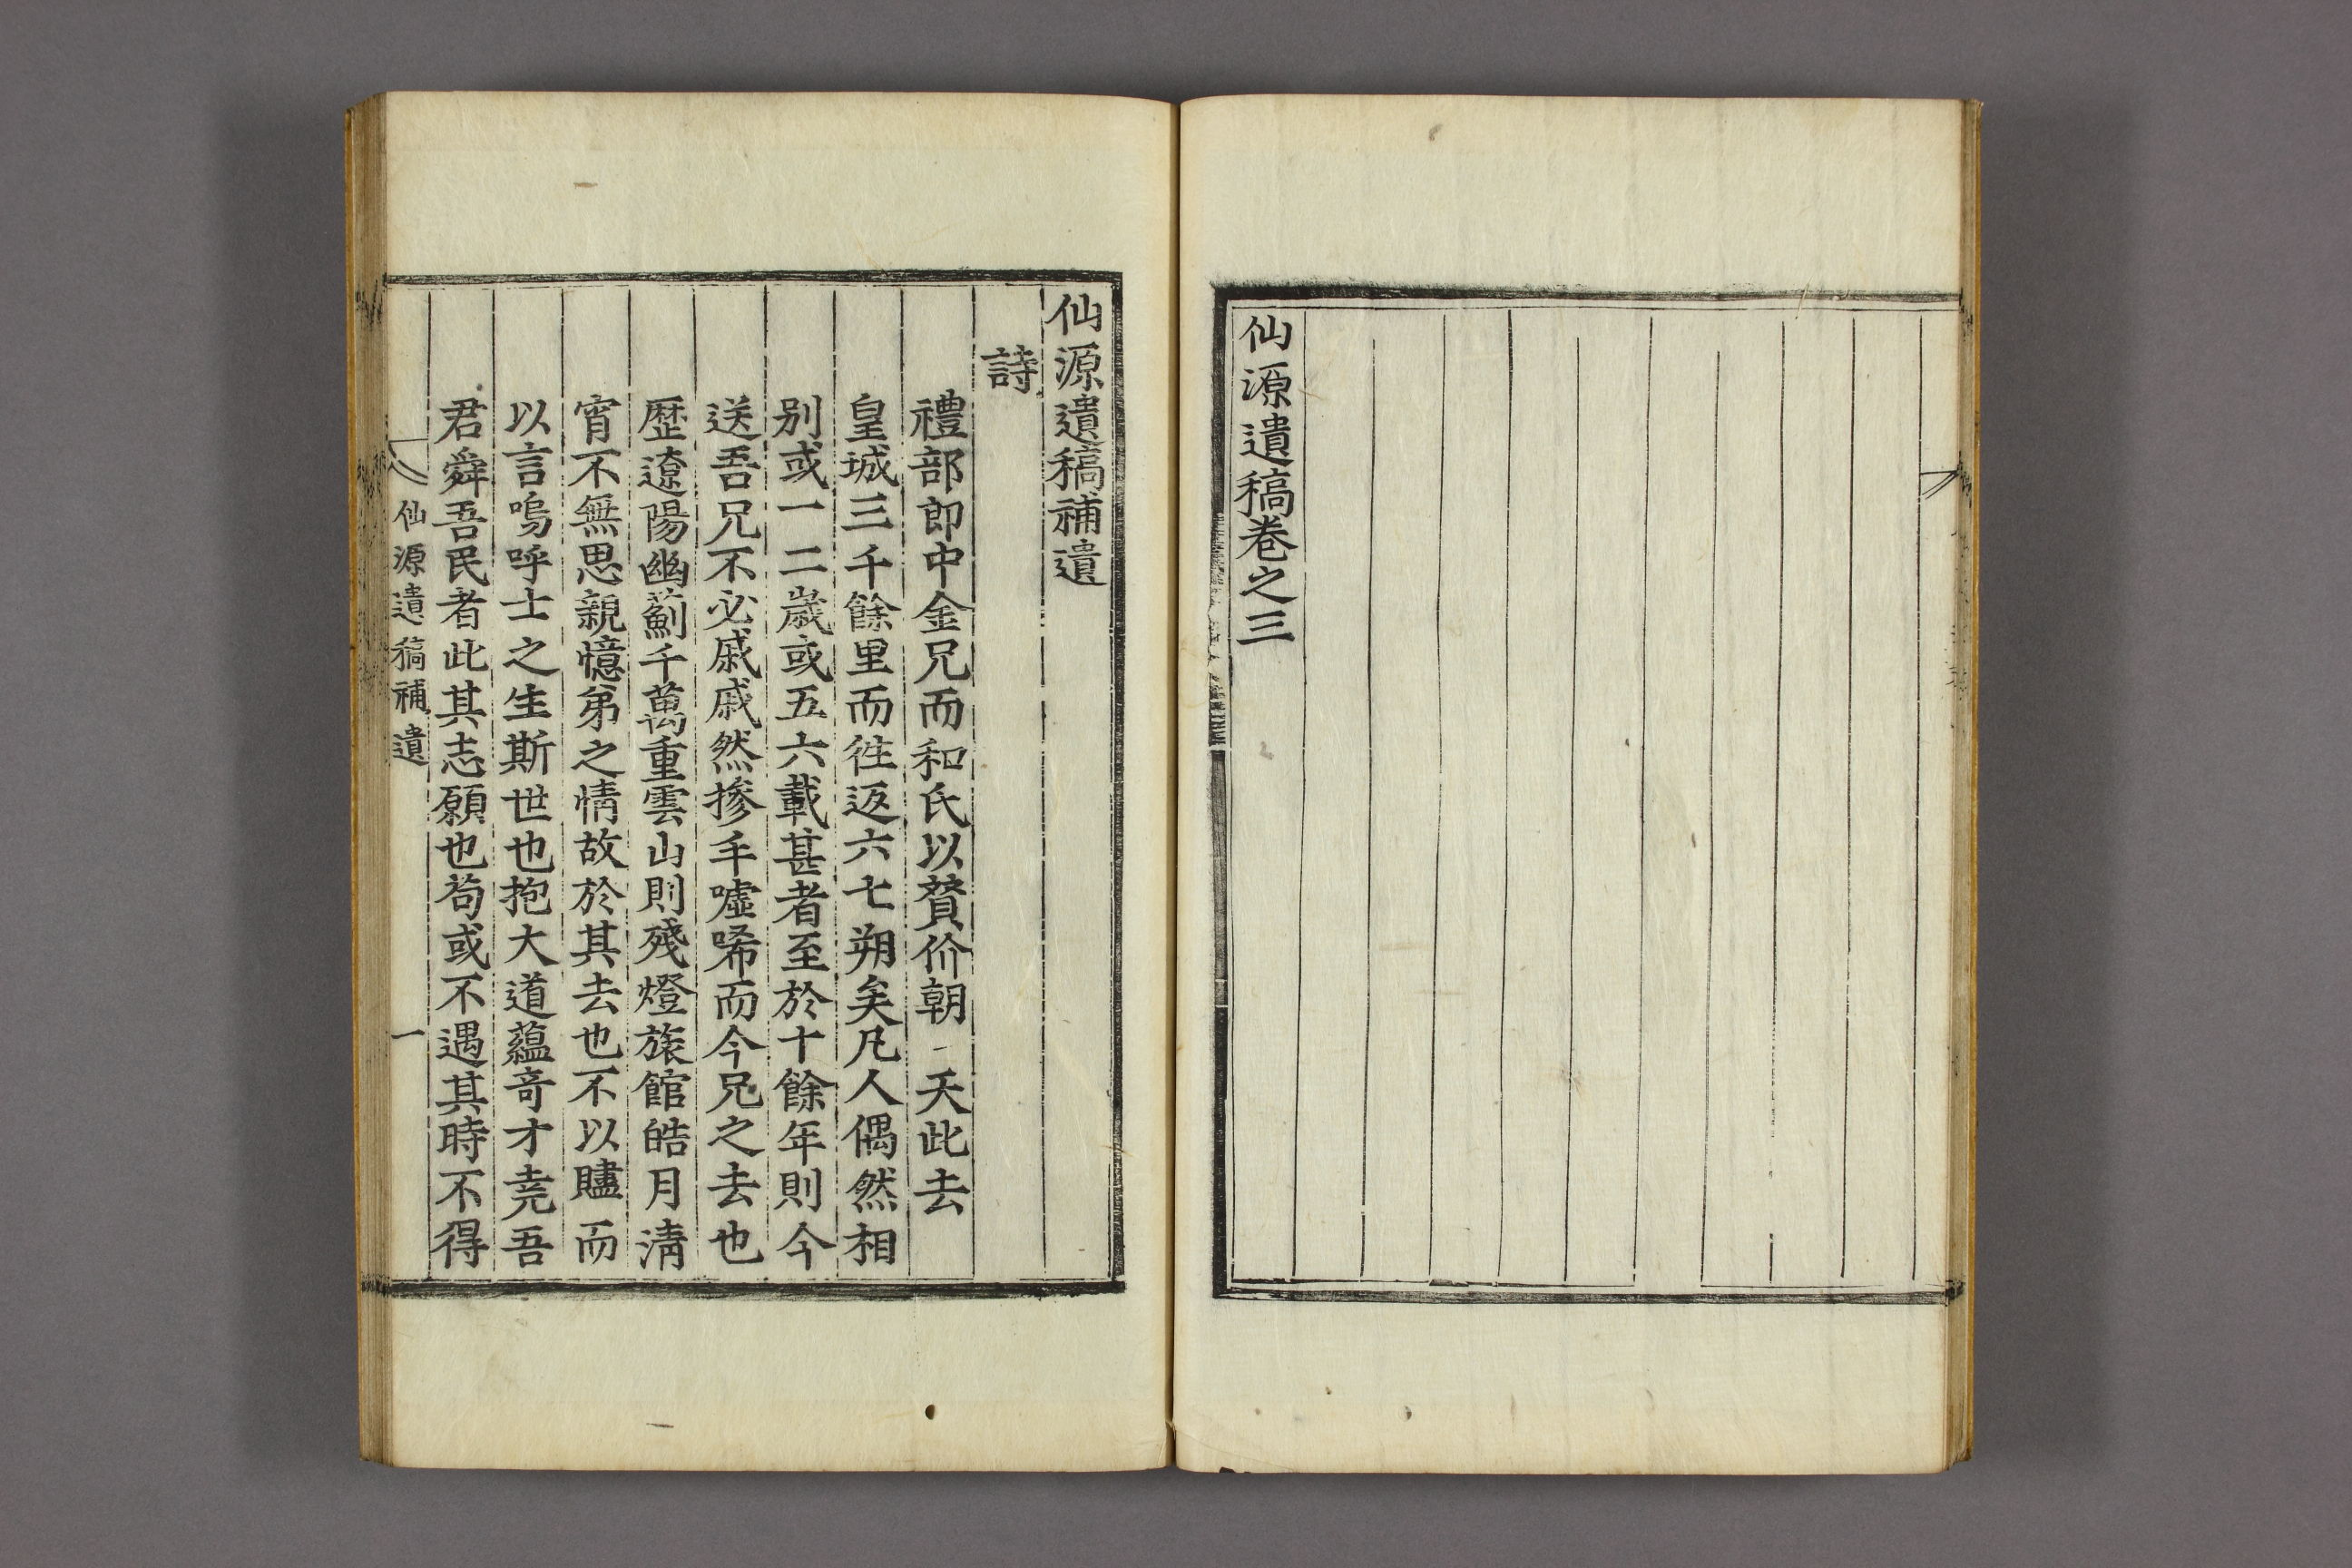 仙源遺稿卷之三
仙源遺稿補遺
詩
禮部郎中金兄而和氏以贅价朝天此去
皇城三千餘里而徃返六七朔矣凡人偶然相
别或一二歲或五六載甚者至於十餘年則今
送吾兄不必戚戚然摻手噓唏而今兄之去也
歷遼陽幽薊千萬重雲山則殘燈旅館皓月淸
宵不無思親憶弟之情故於其去也不以贐而
以言嗚呼士之生斯世也抱大道蘊竒才堯吾
君舜吾民者此其志願也苟或不遇其時不得
仙源遺稿補遺 一